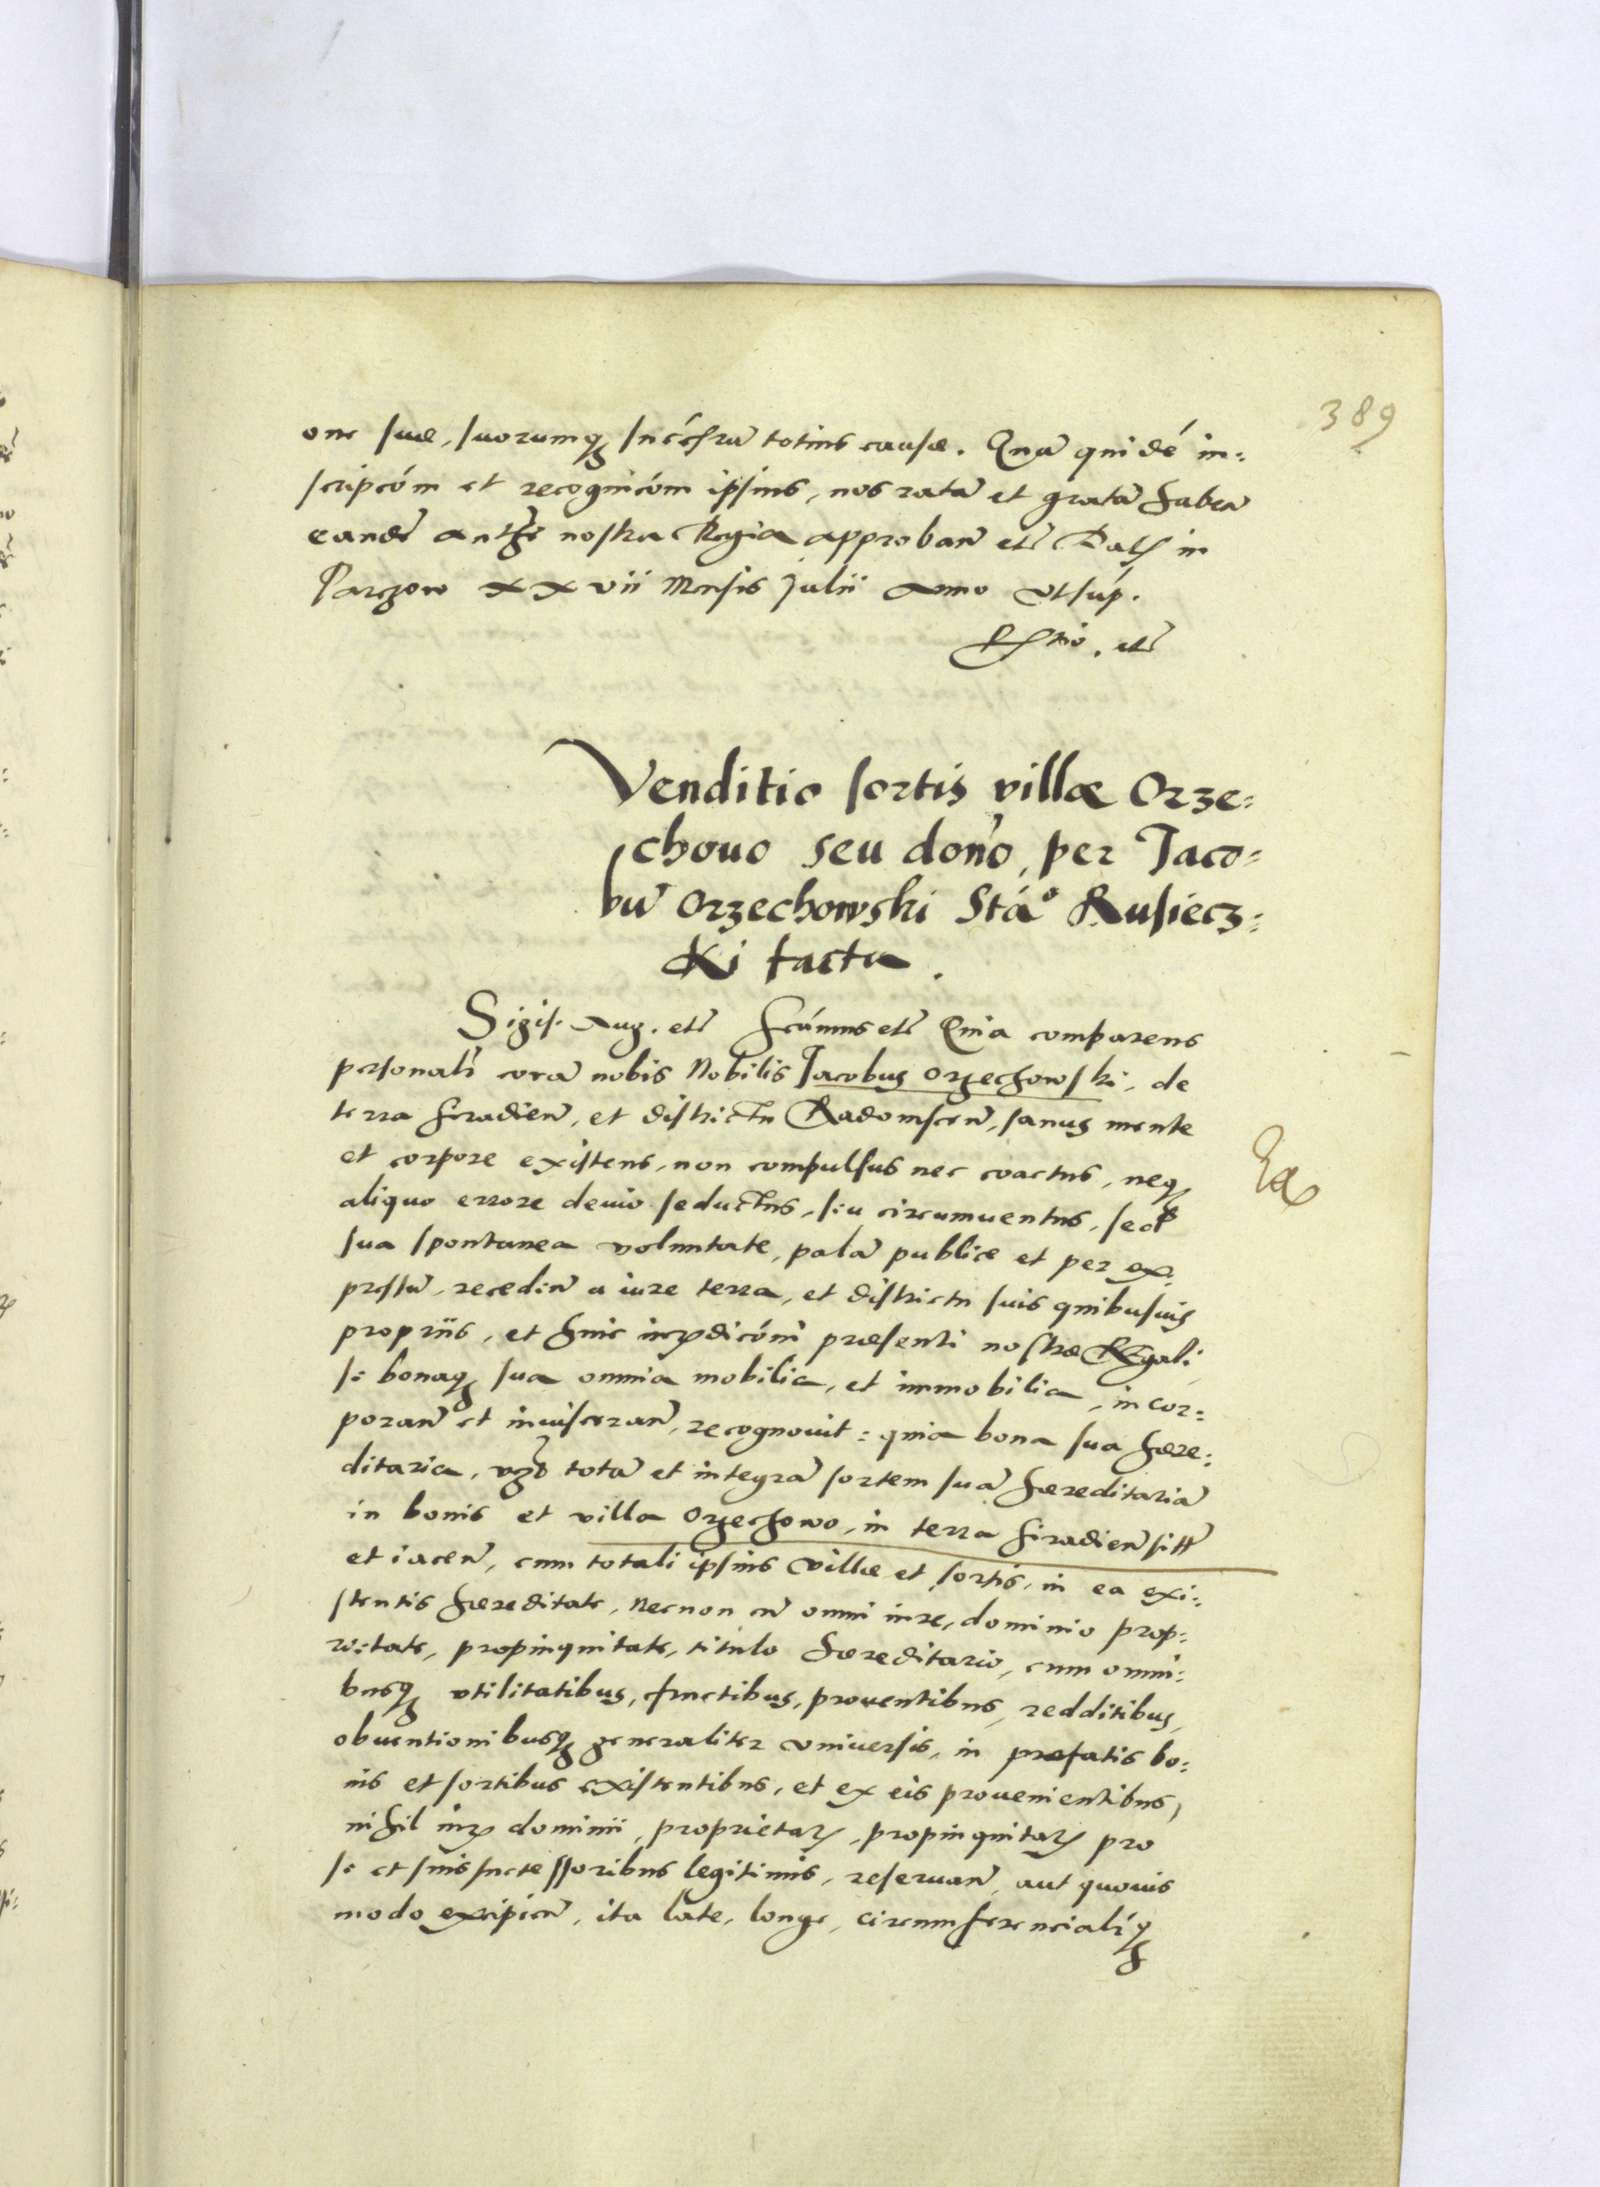 389
one suæ, suorumq; sucēssorū totius causæ. Quā quidé in:
scripcóm et recognicóm ipsius, nos ratā et gratā haben̄
eandē authē nostra Regia approban̄ etē Datꝭ in
Parczow xxvii Mensis Julii Anno ut súp.
Rłtio. etē
Venditio sortis villæ Orze:
chouo seu don̄o, per Jaco:
bū Orzechowski Stá° Rusiecz:
ki facta.
Sigis. Aug. etē Scímus etē Quia comparens
personalr̄ corā nobis Nobilis Jacobus Orzechowski, de
terra Siradien̄, et districtu Radomscen̄, sanus mente
et corpore existens, non compulsus nec coactus, neq;
aliquo errore deuio seductus, seu circumuentus, sed
sua spontanea voluntate, palā publice et per ex:
pressū, receden̄ a iure terra, et districtu suis quibusuis
propriis, et huic iurᵉdicóni præsenti nostræ Regali,
se bonaq; sua omnia mobilia, et immobilia, incor:
poran̄ et inuisceran̄, recognouit: quia bona sua hære:
ditaria, vz totā et integrā sortem suā hæreditariā
in bonis et villa Orzechowo, in terra Siradien̄ sitt̄
et iacen̄, cum totali ipsius villæ et sortis, in ea exi:
stentis hæreditate, necnon cū omni iure, dominio prop:
rietate, propinquitate, titulo hæreditario, cum omni:
busq; utilitatibus, fructibus, prouentibus, redditibus,
obuentionibusq; generaliter vniuersis, in præfatis bo:
nis et sortibus existentibus, et ex eis prouenientibus,
nihil iurꝭ dominii, proprietatꝭ, propinquitatꝭ pro
se et suis successoribus legitimis, reseruan̄, aut quouis
modo excipien̄, ita late, longe, circumferencialr̄q;